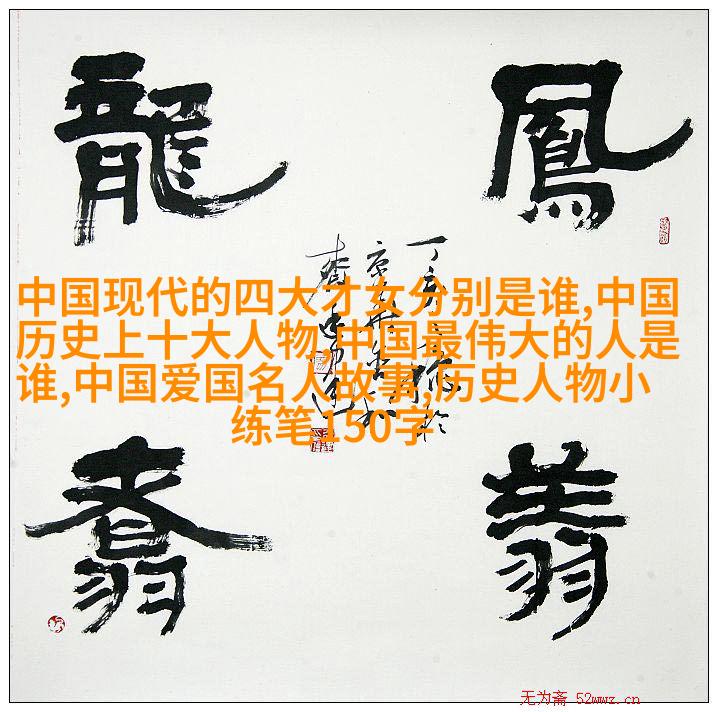 龍 鳳
中国现代的四大才女分别是谁,中国
历史上十大人物,中国最伟大的人是
谁,中国爱国名人故事,历史人物小
练笔150字
翥 翔
无为斋 52wwz.cn